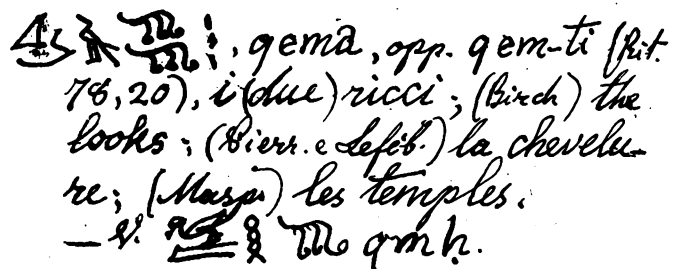 , qemā, opp. qem-ti (Rit.
78,20), i (due) ricci; (Birch) the
looks; (Pierr. e Leféb.) la chevelu-
re; (Masp.) les temples.
— V. qmḥ.